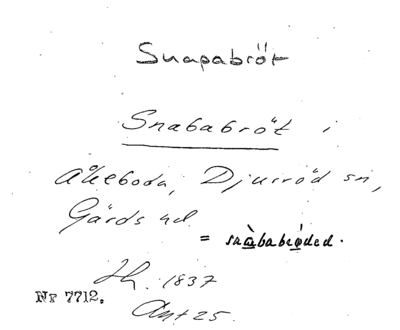 Snapabröt
Snababröt i
Åkeboda, Djurröd sn,
Gärds hd
= snàbabrǫded.
Lh. 1837
Nr 7712.
Ant 25.